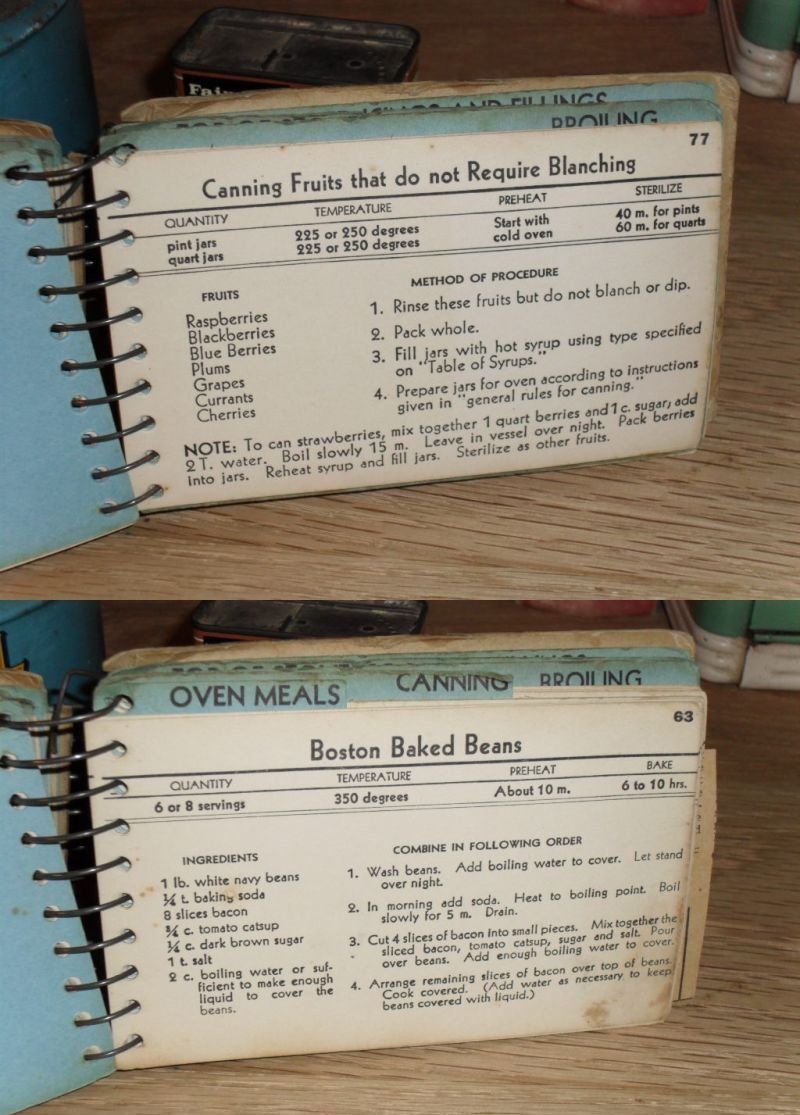 Fair
KINGS AND FILLINGS
BROILING
77
Canning Fruits that do not Require Blanching
QUANTITY TEMPERATURE PREHEAT STERILIZE
pint jars 225 or 250 degrees Start with 40 m. for pints
quart jars 225 or 250 degrees cold oven 60 m. for quarts
FRUITS
Raspberries
Blackberries
Blue Berries
Plums
Grapes
Currants
Cherries
METHOD OF PROCEDURE
1. Rinse these fruits but do not blanch or dip.
2. Pack whole.
3. Fill jars with hot syrup using type specified
on "Table of Syrups."
4. Prepare jars for oven according to instructions
given in "general rules for canning."
NOTE: To can strawberries, mix together 1 quart berries and 1 c. sugar; add
2 T. water. Boil slowly 15 m. Leave in vessel over night. Pack berries
into jars. Reheat syrup and fill jars. Sterilize as other fruits.
OVEN MEALS CANNING BROILING
63
Boston Baked Beans
QUANTITY TEMPERATURE PREHEAT BAKE
6 or 8 servings 350 degrees About 10 m. 6 to 10 hrs.
INGREDIENTS
1 lb. white navy beans
¼ t. baking soda
8 slices bacon
¾ c. tomato catsup
¼ c. dark brown sugar
1 t. salt
2 c. boiling water or suf-
ficient to make enough
liquid to cover the
beans.
COMBINE IN FOLLOWING ORDER
1. Wash beans. Add boiling water to cover. Let stand
over night.
2. In morning add soda. Heat to boiling point. Boil
slowly for 5 m. Drain.
3. Cut 4 slices of bacon into small pieces. Mix together the
sliced bacon, tomato catsup, sugar and salt. Pour
over beans. Add enough boiling water to cover.
4. Arrange remaining slices of bacon over top of beans.
Cook covered. (Add water as necessary to keep
beans covered with liquid.)